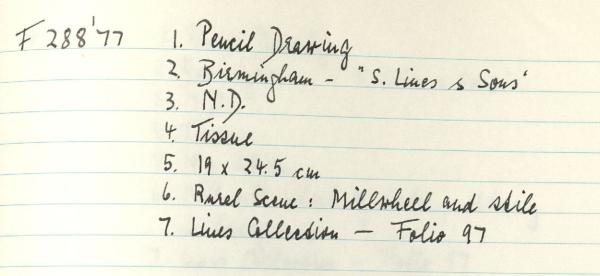 F 288'77 1. Pencil Drawing
2. Birmingham - "S. Lines & Sons'
3. N.D.
4. Tissue
5. 19 x 24.5 cm
6. Rural Scene: Millwheel and stile
7. Lines Collection - Folio 97